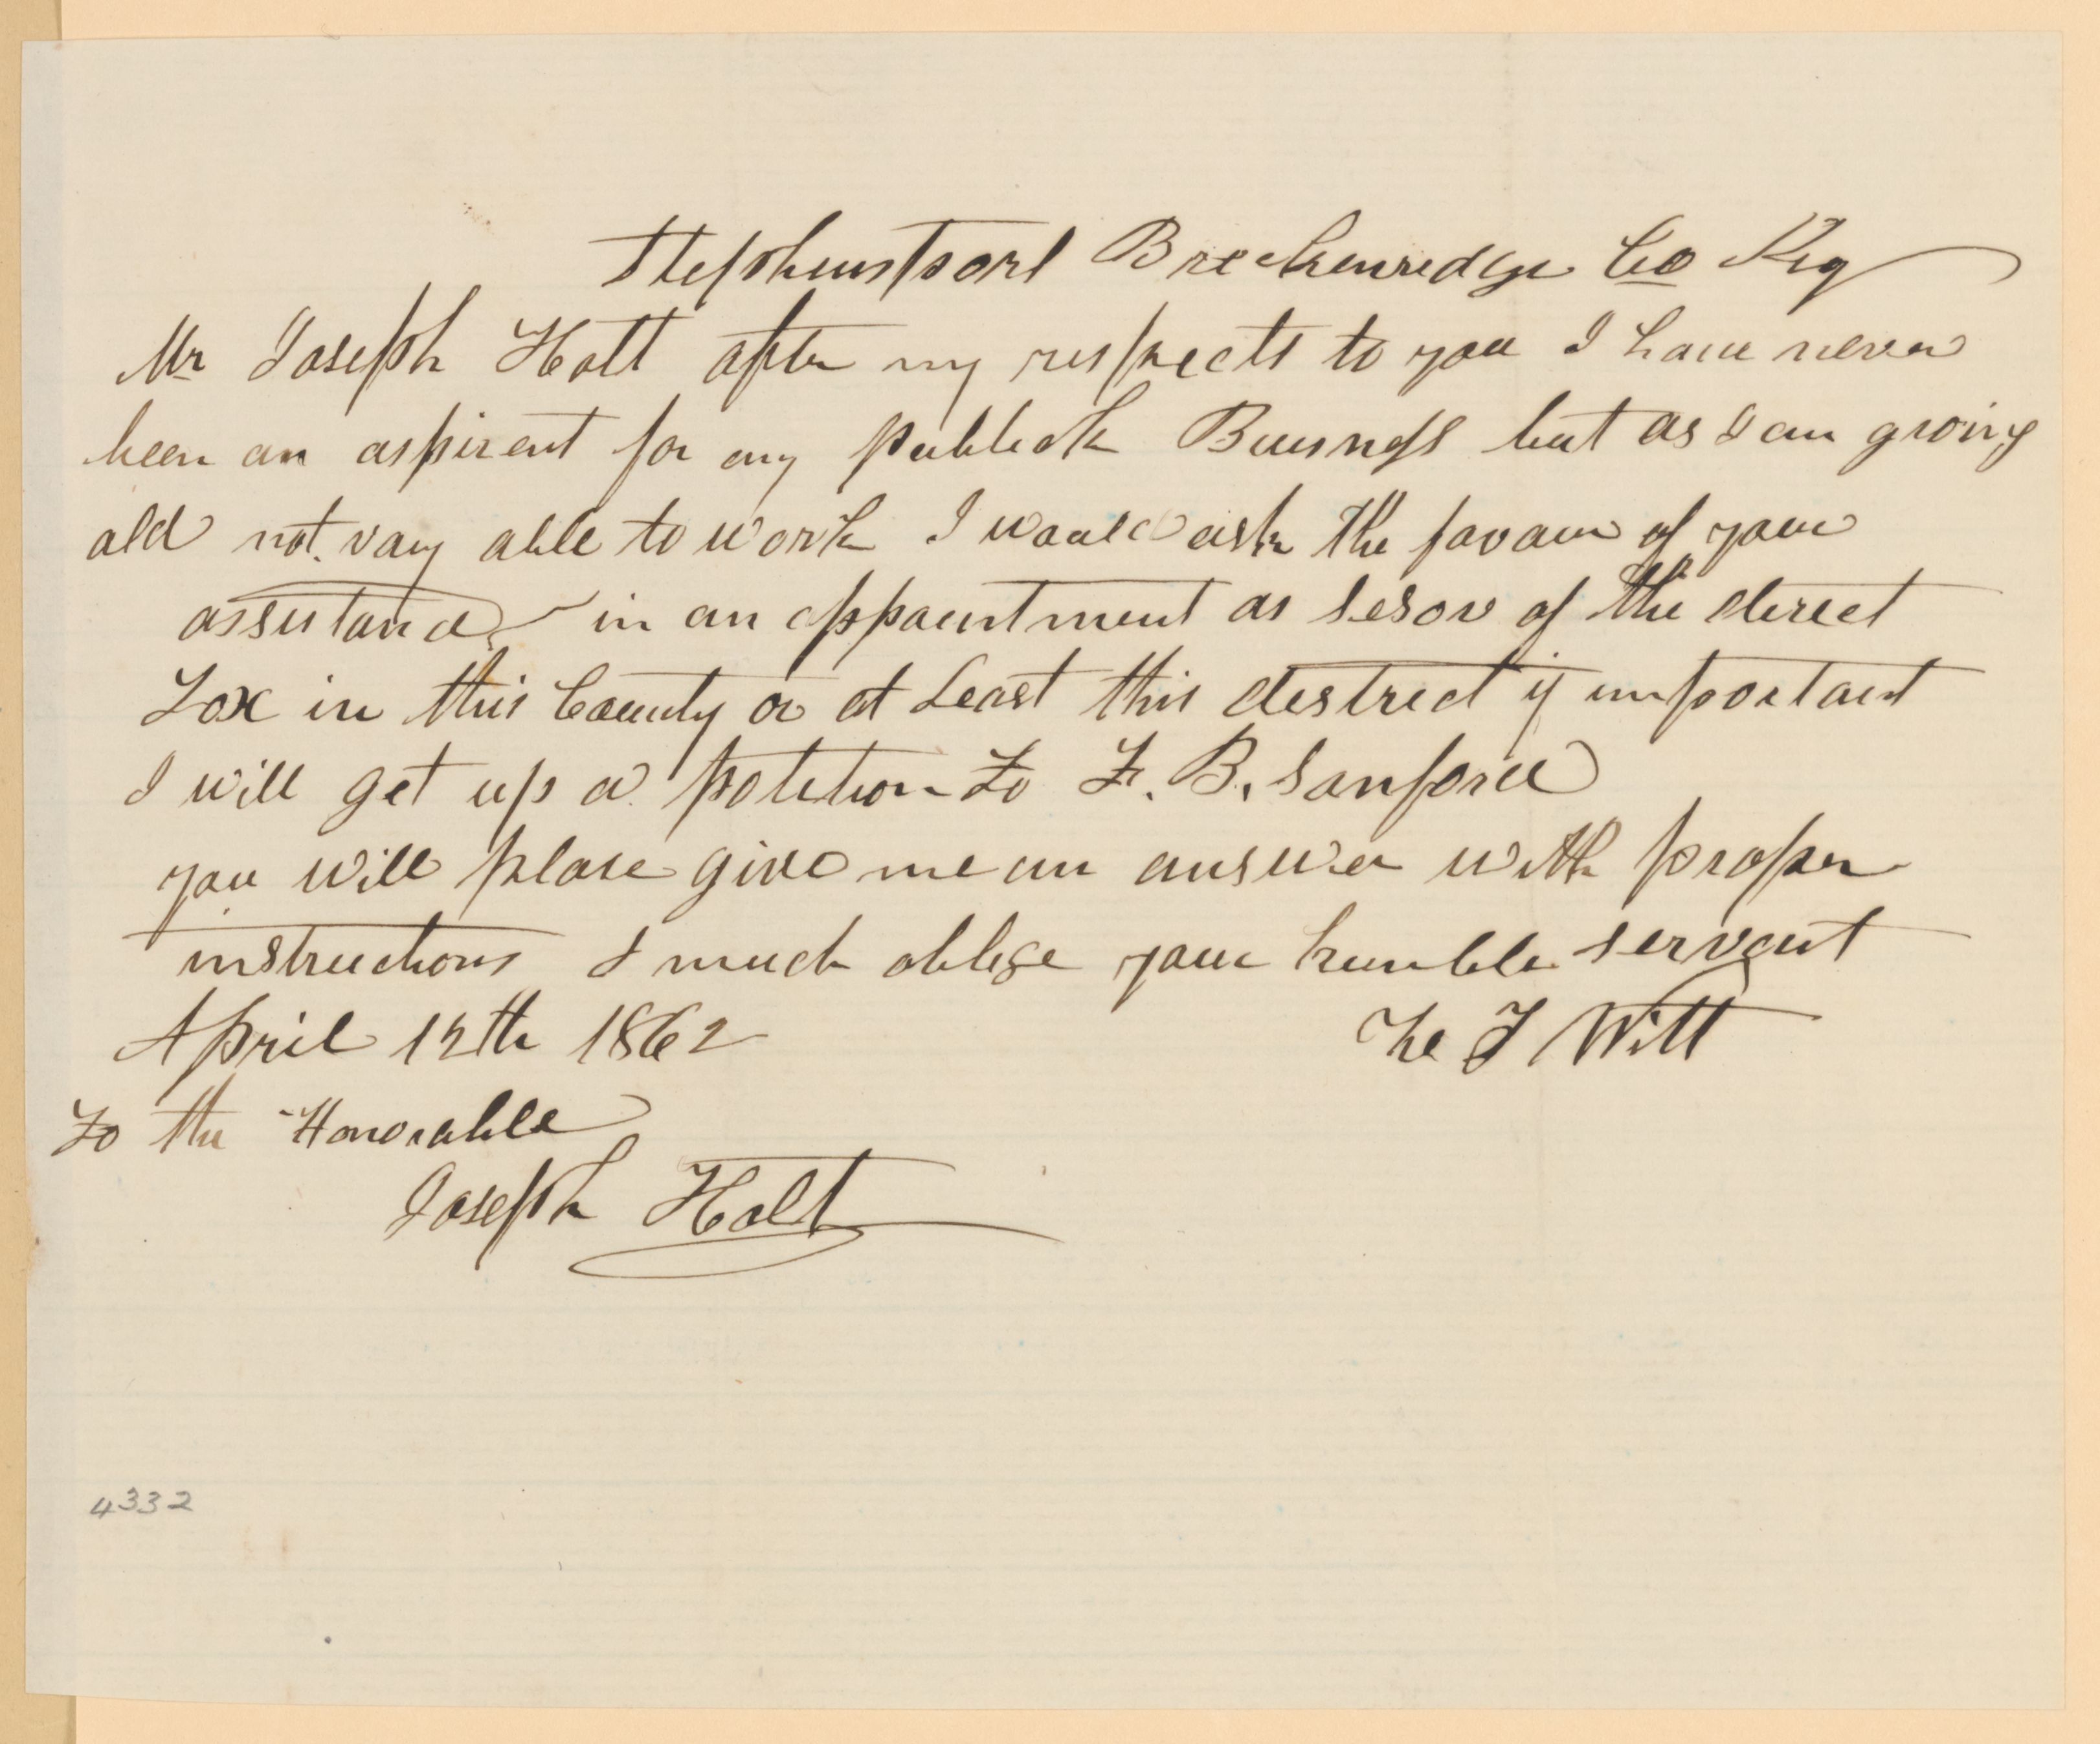 Stephensport Breckenredge Co Ky
Mr Joseph Holt after my respects to you I have never
been an aspirent for any publick Buisness but as I am groing
old not vary able to work I would ask the favour of your
assistance in an appointment as sesor of the direct
Tax in this County or at Least this destrect if important
I will get up a potition To F. B. Sanford
you will plase give me an answer with proper
instructions & much oblige your humble servant
April 12th 1862 J Witt
To the Honorable
Joseph Holt
4332